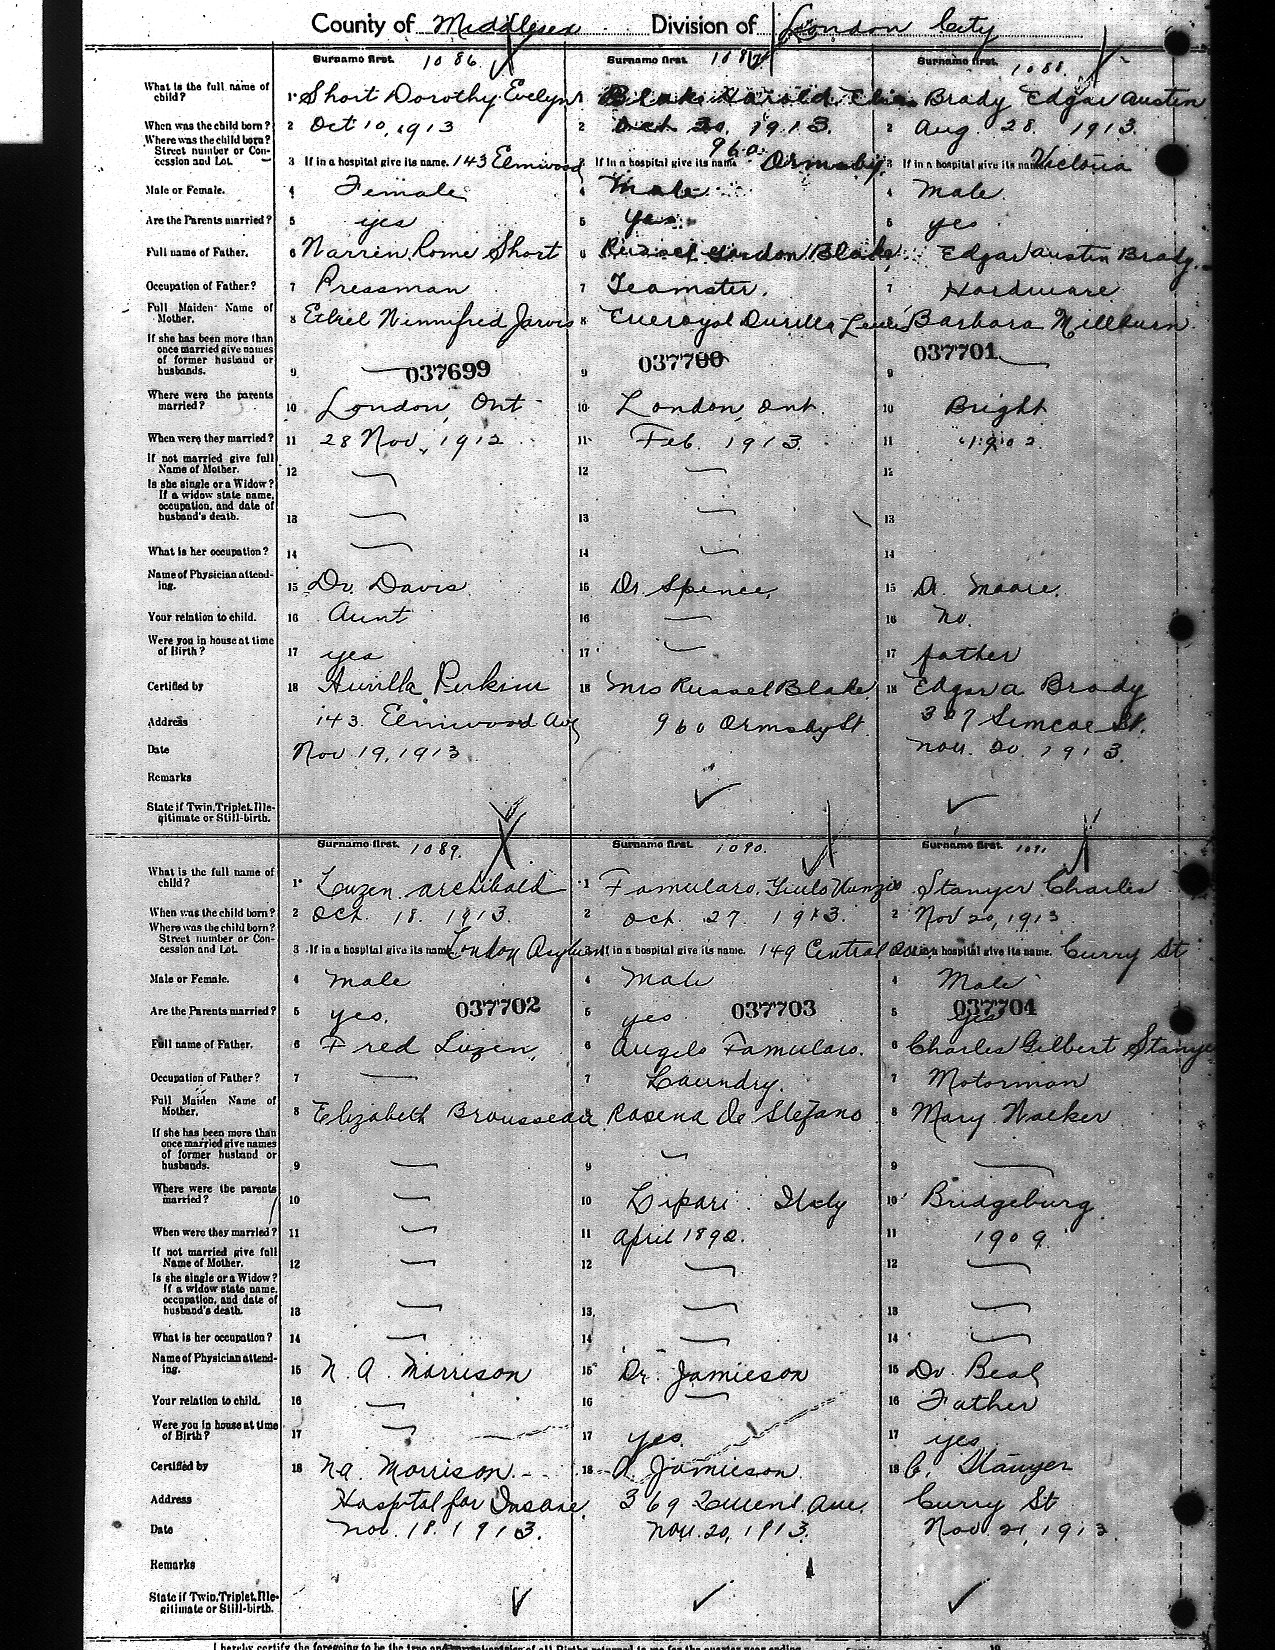 County of Middlesex Division of London City
Surname first. 1086. Surname first. 1087 Surname first. 1088.
What is the full name of child? 1 Short Dorothy Evelyn 1 Blake Harold 1 Brady Edgar Austin
When was the child born? 2 Oct 10, 1913 2 Oct 30, 1913. 2 Aug. 28. 1913.
Where was the child born? Street number or Concession and Lot. 3 If in a hospital give its name. 143 Elmwood 3 If in a hospital give its name 960 Ormsby 3 If in a hospital give its name Victoria
Male or Female. 4 Female 4 Male 4 Male.
Are the Parents married? 5 yes 5 yes 5 yes
Full name of Father. 6 Warren Rome Short 6 Russel Gordon Blake 6 Edgar Austin Brady.
Occupation of Father? 7 Pressman 7 Teamster. 7 Hardware
Full Maiden Name of Mother. 8 Ethel Winnifred Jarvis 8 8 Barbara Millburn
If she has been more than once married give names of former husband or husbands. 9 — 9 9 —
037699 037700 037701
Where were the parents married? 10 London, Ont 10 London, Ont. 10 Bright
When were they married? 11 28 Nov, 1912 11 Feb. 1913. 11 1902
If not married give full Name of Mother. 12 — 12 — 12
Is she single or a Widow? If a widow state name, occupation, and date of husband's death. 13 — 13 — 13
What is her occupation? 14 — 14 — 14
Name of Physician attending. 15 Dr. Davis 15 Dr. Spence. 15 Dr. Moore.
Your relation to child. 16 Aunt 16 — 16 No.
Were you in house at time of Birth? 17 yes 17 — 17 father
Certified by 18 Perkins 18 Mrs Russel Blake 18 Edgar A Brady
Address 143. Elmwood Ave 960 Ormsby St 307 Simcoe St.
Date Nov 19, 1913 Nov. 20 1913.
Remarks
State if Twin, Triplet, Illegitimate or Still-birth.
Surname first. 1089. Surname first. 1090. Surname first. 1091
What is the full name of child? 1 Luzen Archibald 1 Famularo, 1 Stanyer Charles
When was the child born? 2 Oct. 18. 1913. 2 Oct. 27. 1913. 2 Nov 20, 1913
Where was the child born? Street number or Concession and Lot. 3 If in a hospital give its name London Asylum 3 If in a hospital give its name. 149 Central Ave 3 If in a hospital give its name. Curry St
Male or Female. 4 Male 4 Male 4 Male
Are the Parents married? 5 yes. 037702 5 yes 037703 5 yes 037704
Full name of Father. 6 Fred Luzen. 6 Angelo Famularo. 6 Charles Gilbert Stanyer
Occupation of Father? 7 — 7 Laundry. 7 Motorman
Full Maiden Name of Mother. 8 Elizabeth Brousseau 8 Rosena De Stefano 8 Mary Walker
If she has been more than once married give names of former husband or husbands. 9 — 9 — 9 —
Where were the parents married? 10 — 10 Lipari. Italy 10 Bridgeburg
When were they married? 11 — 11 April 1892. 11 1909
If not married give full Name of Mother. 12 — 12 — 12 —
Is she single or a Widow? If a widow state name, occupation, and date of husband's death. 13 — 13 — 13 —
What is her occupation? 14 — 14 — 14 —
Name of Physician attending. 15 N. A. Morrison 15 Dr. Jamieson 15 Dr. Beal
Your relation to child. 16 — 16 — 16 Father
Were you in house at time of Birth? 17 — 17 yes. 17 yes
Certified by 18 N A. Morrison. 18 A Jamieson. 18 C. Stanyer
Address Hospital for Insane. 369 Queens Ave. Curry St
Date Nov. 18. 1913. Nov. 20, 1913. Nov. 21, 1913
Remarks
State if Twin, Triplet, Illegitimate or Still-birth.
I hereby certify the foregoing to be the true and of all Births returned to me for the quarter year ending 19